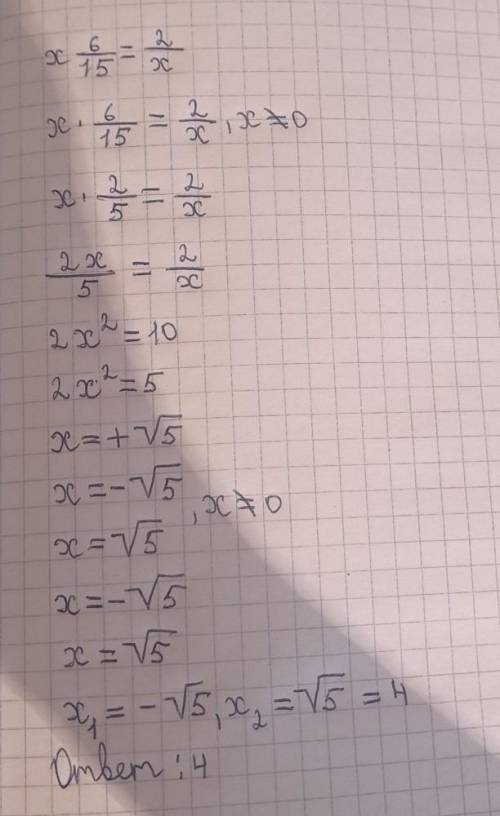 x 6/15 = 2/x
x · 6/15 = 2/x, x ≠ 0
x · 2/5 = 2/x
2x/5 = 2/x
2x² = 10
2x² = 5
x = +√5
x = -√5
, x ≠ 0
x = √5
x = -√5
x = √5
x₁ = -√5, x₂ = √5 = 4
Ответ: 4